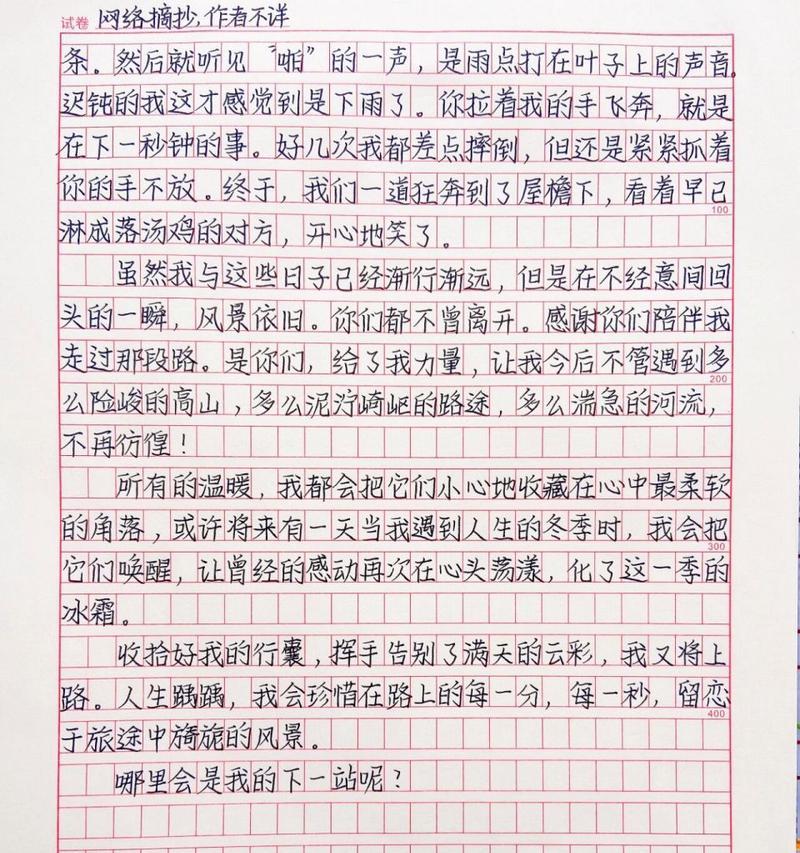 试卷 网络摘抄,作者不详
条。然后就听见“啪”的一声，是雨点打在叶子上的声音。
迟钝的我这才感觉到是下雨了。你拉着我的手飞奔，就是
在下一秒钟的事。好几次我都差点摔倒，但还是紧紧抓着
你的手不放。终于，我们一道狂奔到了屋檐下，看着早已
100
淋成落汤鸡的对方，开心地笑了。
虽然我与这些日子已经渐行渐远，但是在不经意间回
头的一瞬，风景依旧。你们都不曾离开。感谢你们陪伴我
走过那段路。是你们，给了我力量，让我今后不管遇到多
200
么险峻的高山，多么泥泞崎岖的路途，多么湍急的河流，
不再彷徨！
所有的温暖，我都会把它们小心地收藏在心中最柔软
的角落，或许将来有一天当我遇到人生的冬季时，我会把
300
它们唤醒，让曾经的感动再次在心头荡漾，化了这一季的
冰霜。
收拾好我的行囊，挥手告别了满天的云彩，我又将上
路。人生踽踽，我会珍惜在路上的每一分，每一秒，留恋
400
于旅途中旖旎的风景。
哪里会是我的下一站呢？